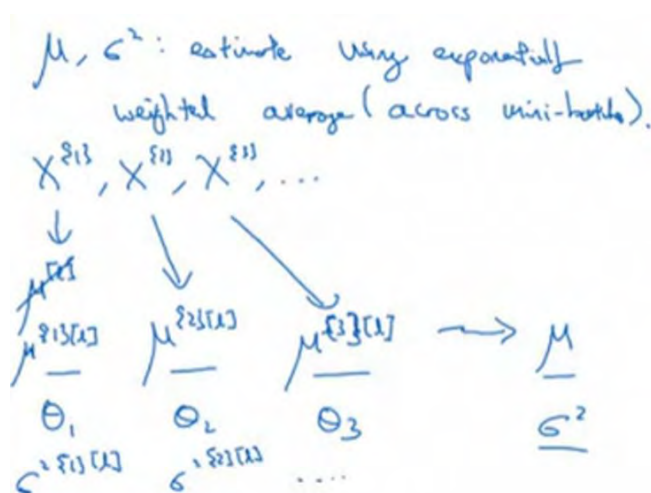 μ, σ²: estimate using exponentially
weighted average (across mini-batches).
X^{1}, X^{2}, X^{3}, ...
μ^[l]
μ^{1}[l] μ^{2}[l] μ^{3}[l] → μ
θ₁ θ₂ θ₃ σ²
σ²^{1}[l] σ²^{2}[l] ....